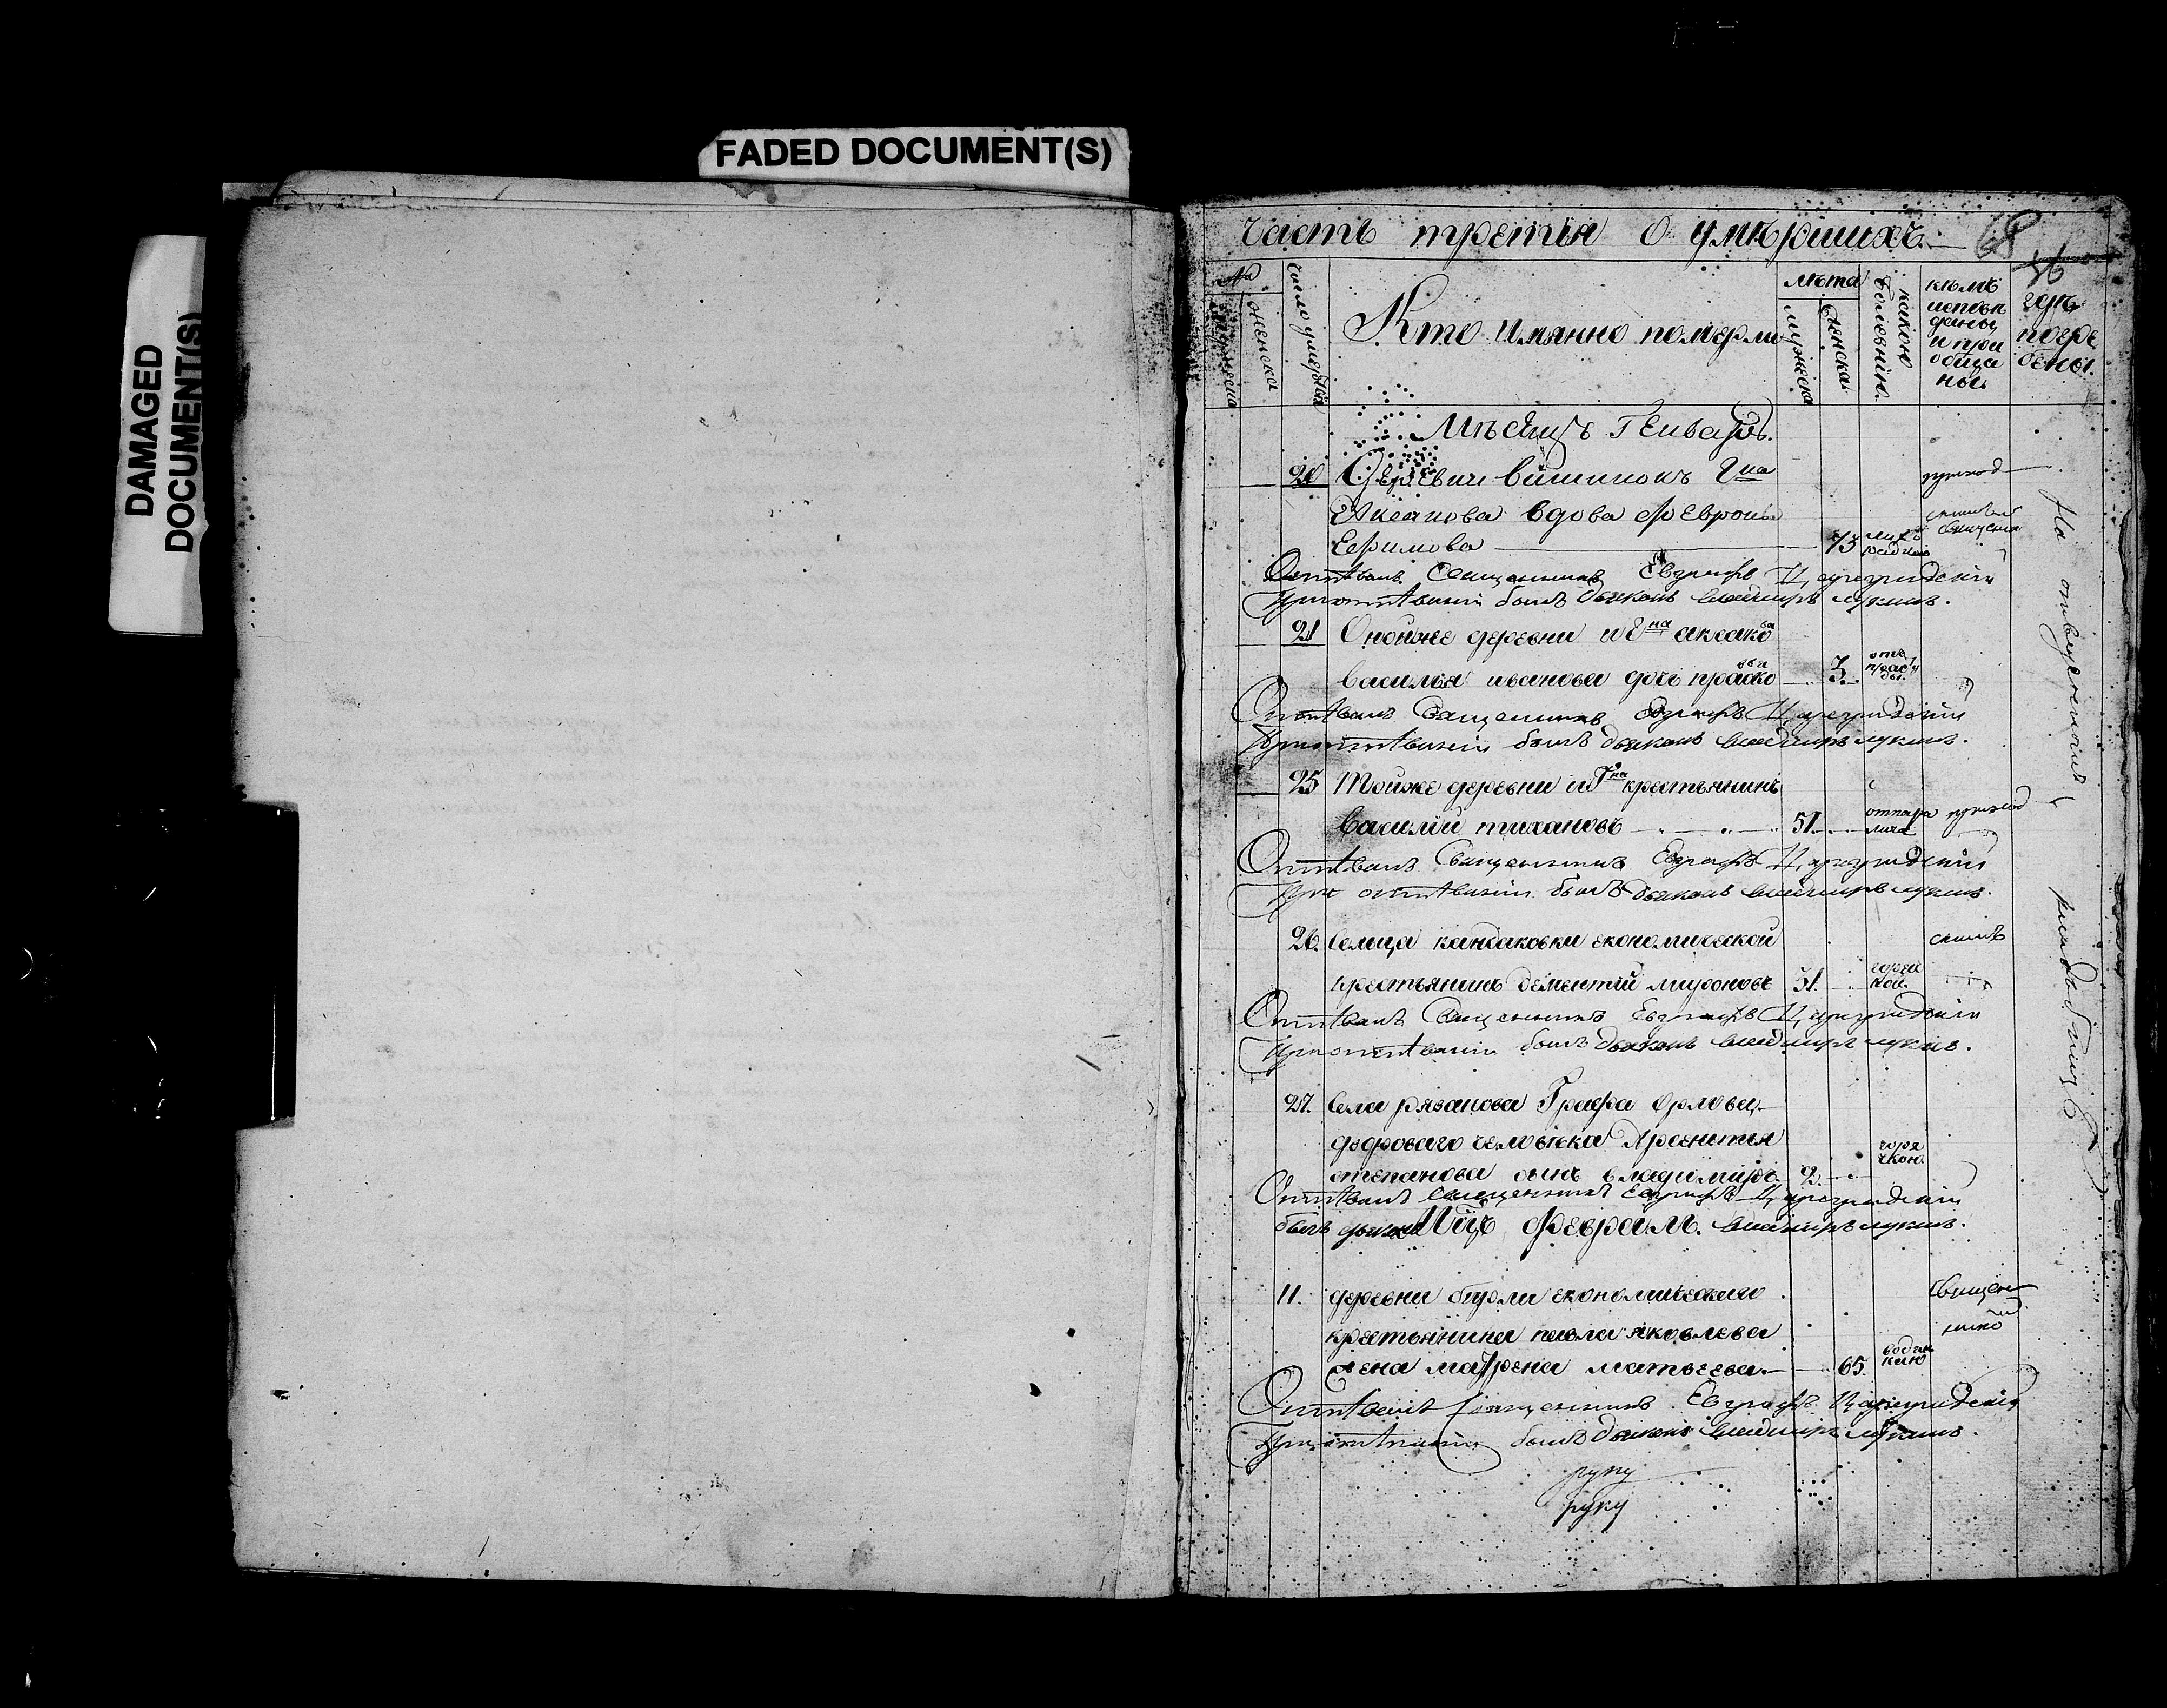 FADED DOCUMENT(S)
DAMAGED
DOCUMENT(S)
часть третья о умѣршихъ. 68
№ мужеска женска
число умертвія
Кто имянно померли
лѣта мужеска женска
какою болѣзнію
кѣмъ
исповѣ
даны
и при
обща
ны
гдѣ
погре
бены.
Мѣсяцъ Генварь.
20 Деревни Вишинокъ Гна
Аксакова вдова Февронья
Ефимова 73
Отпѣвалъ Священникъ Евграфъ Цареградскій
При отпѣваніи былъ дьяконъ Владимиръ Лукинъ.
21 Оной же деревни и Гна аксакова
василья иванова дочь прасковья 3.
Отпѣвалъ Священникъ Евграфъ Цареградскій
При отпѣваніи былъ дьяконъ Владимиръ Лукинъ.
25 Той же деревни и Гна крестьянинъ
Василій тихановъ 51.
Отпѣвалъ Священникъ Евграфъ Цареградскій
При отпѣваніи былъ дьяконъ Владимиръ Лукинъ.
26. Сельца кандаковки економической
крестьянинъ дементий мироновъ 51. горяч
кой
Отпѣвалъ Священникъ Евграфъ Цареградскій
При отпѣваніи былъ дьяконъ Владимиръ Лукинъ.
27. Села рязанова Графа орлова
дворового человѣка Арсентия
степанова сынъ владимиръ 2. горя
чкою
Отпѣвалъ Священникъ Евграфъ Цареградскій
былъ дьяконъ Владимиръ Лукинъ.
Мцъ Февраль.
11. деревни економического
крестьянина павла яковлева
жена Матрена матвеева 65. водян
кою
Отпѣвалъ Священникъ Евграфъ Цареградскій
При отпѣваніи былъ дьяконъ Владимиръ Лукинъ.
руку
руку
На отведенномъ кладбищѣ